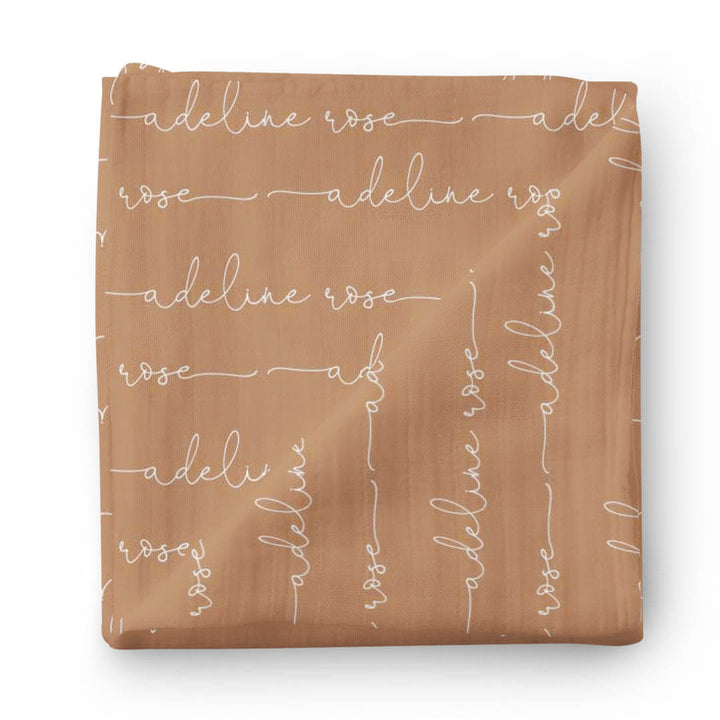 adeline rose adel
rose adeline ros
adeline rose
rose ad
adeli
rose
rose
adeline
rose ad
adeline rose
adeline ro